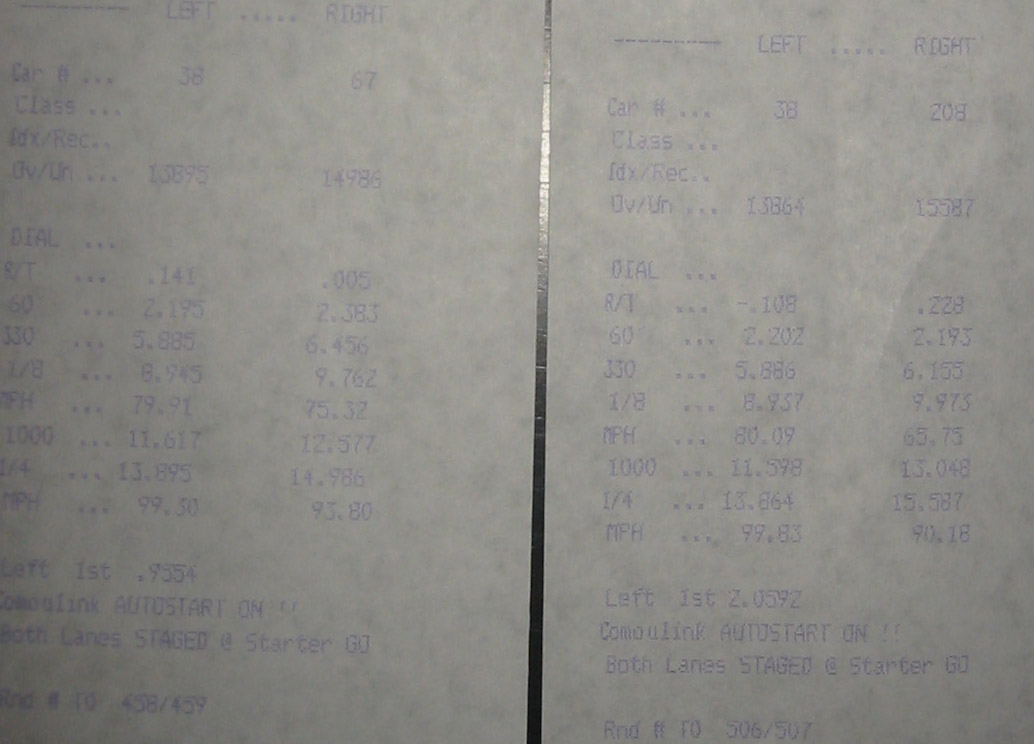 ---------- LEFT ..... RIGHT
Car # ... 38 67
Class ...
Idx/Rec..
Ov/Un ... 13895 14986
DIAL ...
R/T ... .141 .005
60 ... 2.195 2.383
330 ... 5.885 6.456
1/8 ... 8.945 9.762
MPH ... 79.91 75.32
1000 ... 11.617 12.577
1/4 ... 13.895 14.986
MPH ... 99.30 93.80
Left 1st .9554
Compulink AUTOSTART ON !!
Both Lanes STAGED @ Starter GO
Rnd # TO 458/459
---------- LEFT ..... RIGHT
Car # ... 38 208
Class ...
Idx/Rec..
Ov/Un ... 13864 15587
DIAL ...
R/T ... -.108 .228
60 ... 2.202 2.193
330 ... 5.886 6.155
1/8 ... 8.937 9.973
MPH ... 80.09 65.75
1000 ... 11.598 13.048
1/4 ... 13.864 15.587
MPH ... 99.83 90.18
Left 1st 2.0592
Compulink AUTOSTART ON !!
Both Lanes STAGED @ Starter GO
Rnd # TO 506/507